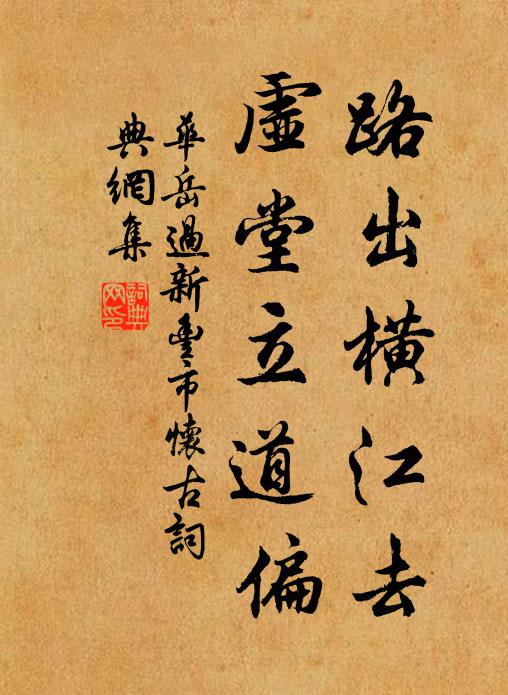 路出橫江去
虛堂立道偏
華岳過新豐市懷古詞
典網集
詞典網印